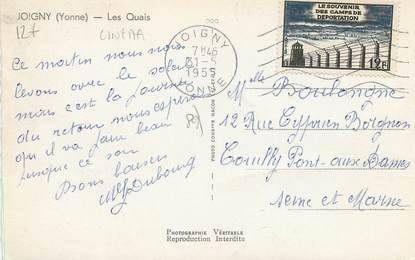 JOIGNY (Yonne) — Les Quais
127
CINÉMA
Ce matin nous nous
levons avec le soleil
mais c'est la journée
du retour nous espérons
qu'il va faire beau
jusque ce soir
Bons baisers
M Dubourg
JOIGNY
7H45
21-5
1955
YONNE
LE SOUVENIR
DES CAMPS DE
DÉPORTATION
12F
Melle Boulongne
12 Rue Cyprien Boignon
Couilly Pont-aux-Dames
Seine et Marne
PHOTO COMBIER MACON
PHOTOGRAPHIE VÉRITABLE
Reproduction Interdite